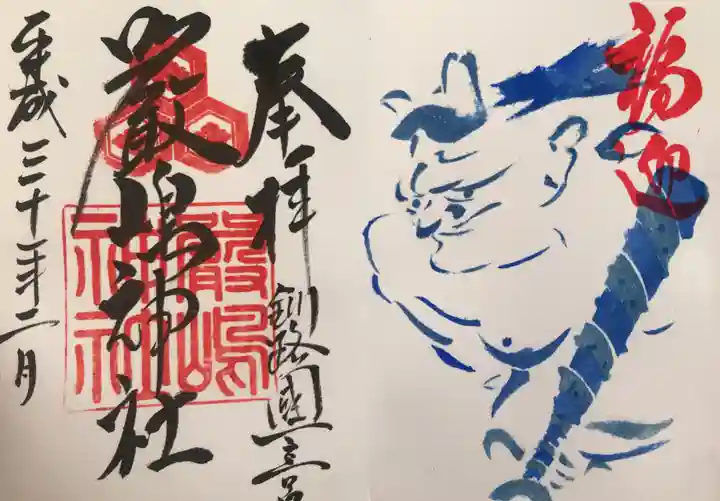 福迎
奉拝
釧路國一之宮
嚴嶋神社
嚴嶋
神社
平成三十一年二月